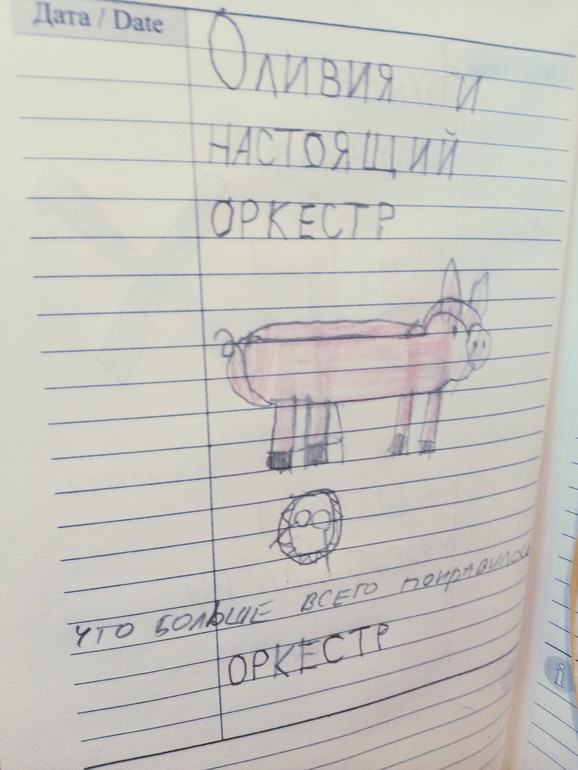 Дата / Date
Оливия и
настоящий
оркестр
что больше всего понравилось
оркестр
i